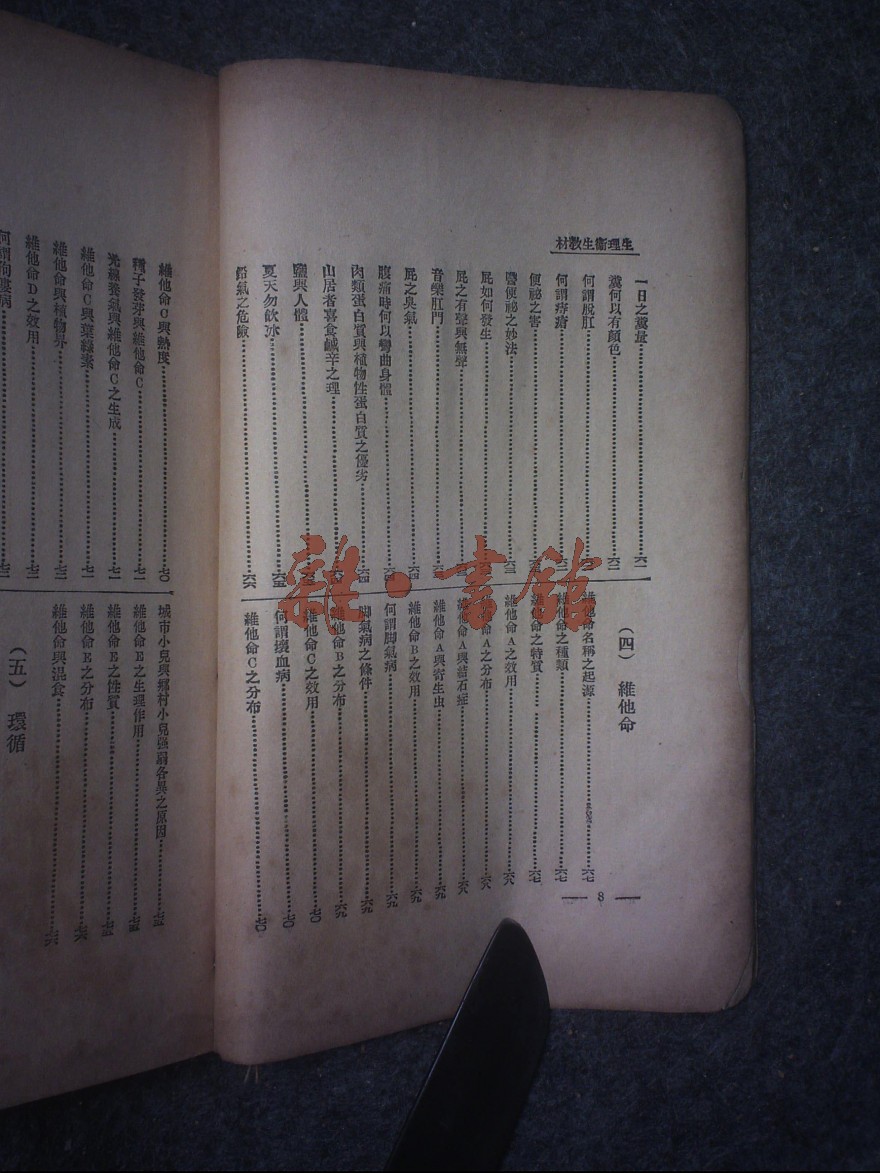 生理衛生教材
一日之糞量……六一
糞何以有顏色……六二
何謂脫肛
何謂痔瘡……六二
便祕之害
醫便祕之妙法……六三
屁如何發生
屁之有聲與無聲……六三
音樂肛門……六四
屁之臭氣……六四
腹痛時何以彎曲身體……六四
肉類蛋白質與植物性蛋白質之優劣……六四
山居者喜食鹹辛之理
鹽與人體
夏天勿飲冰……六五
鉛氣之危險……六六
(四) 維他命
維他命名稱之起源……六七
維他命之種類……六七
維他命之特質……六七
維他命A之效用……六八
維他命A之分布……六八
維他命A與結石症……六八
維他命A與寄生虫……六九
維他命B之效用……六九
何謂脚氣病……六九
脚氣病之條件……六九
維他命B之分布……六九
維他命C之效用……七〇
何謂壞血病……七〇
維他命C之分布……七〇
8
維他命C與熱度……七〇
種子發芽與維他命C……七一
光線養氣與維他命C之生成……七一
維他命C與葉綠素……七一
維他命與植物界
維他命D之效用
何謂佝僂病
城市小兒與鄉村小兒強弱各異之原因……七五
維他命E之生理作用……七五
維他命E之性質……七五
維他命E之分布……七六
維他命與混食……七六
(五) 環循
雜·書館